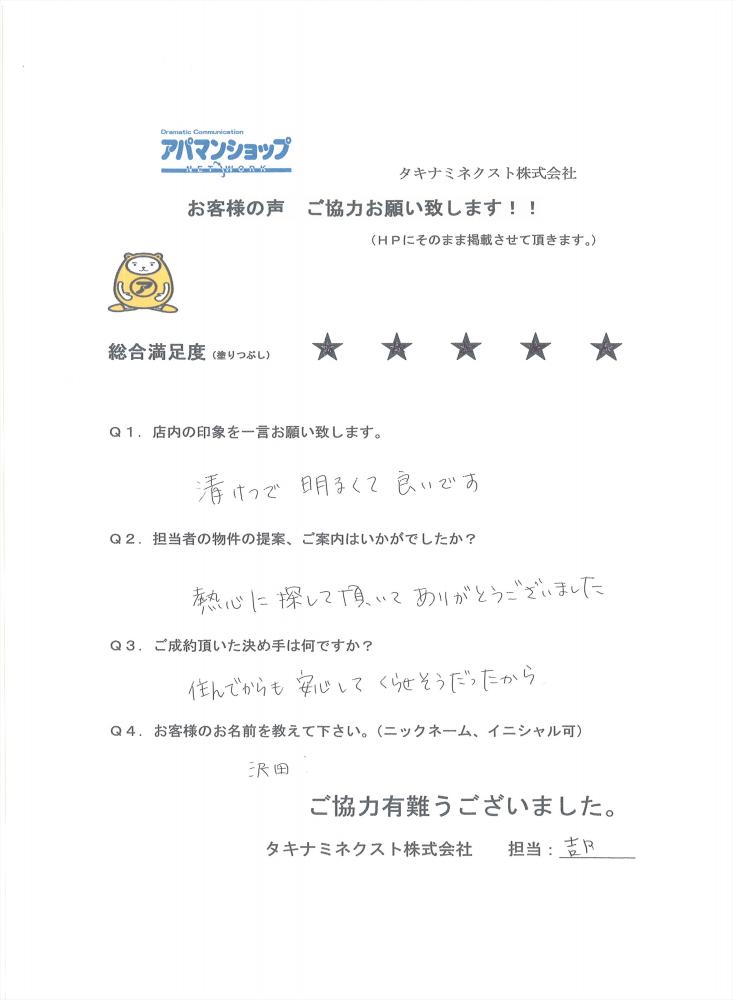 Dramatic Communication
アパマンショップ
NETWORK
タキナミネクスト株式会社
お客様の声　ご協力お願い致します！！
（ＨＰにそのまま掲載させて頂きます。）
ア
総合満足度（塗りつぶし） ★ ★ ★ ★ ★
Ｑ１．店内の印象を一言お願い致します。
清けつで 明るくて 良いです
Ｑ２．担当者の物件の提案、ご案内はいかがでしたか？
熱心に 探して頂いて ありがとうございました
Ｑ３．ご成約頂いた決め手は何ですか？
住んでからも 安心して くらせそうだったから
Ｑ４．お客様のお名前を教えて下さい。（ニックネーム、イニシャル可）
沢田
ご協力有難うございました。
タキナミネクスト株式会社　　担当：吉